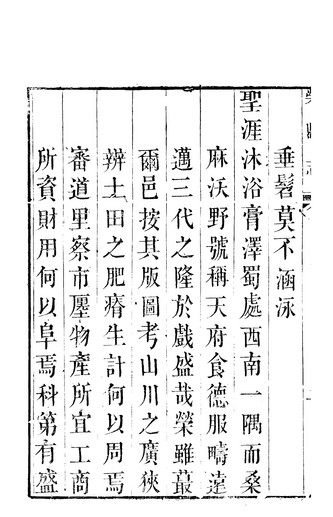 垂髫莫不涵泳
聖涯沐浴膏澤蜀處西南一隅而桑
麻沃野號稱天府食德服疇遠
邁三代之隆於戲盛哉榮雖蕞
爾邑按其版圖考山川之廣狹
辨土田之肥瘠生計何以周焉
審道里察市廛物產所宜工商
所資財用何以阜焉科第有盛